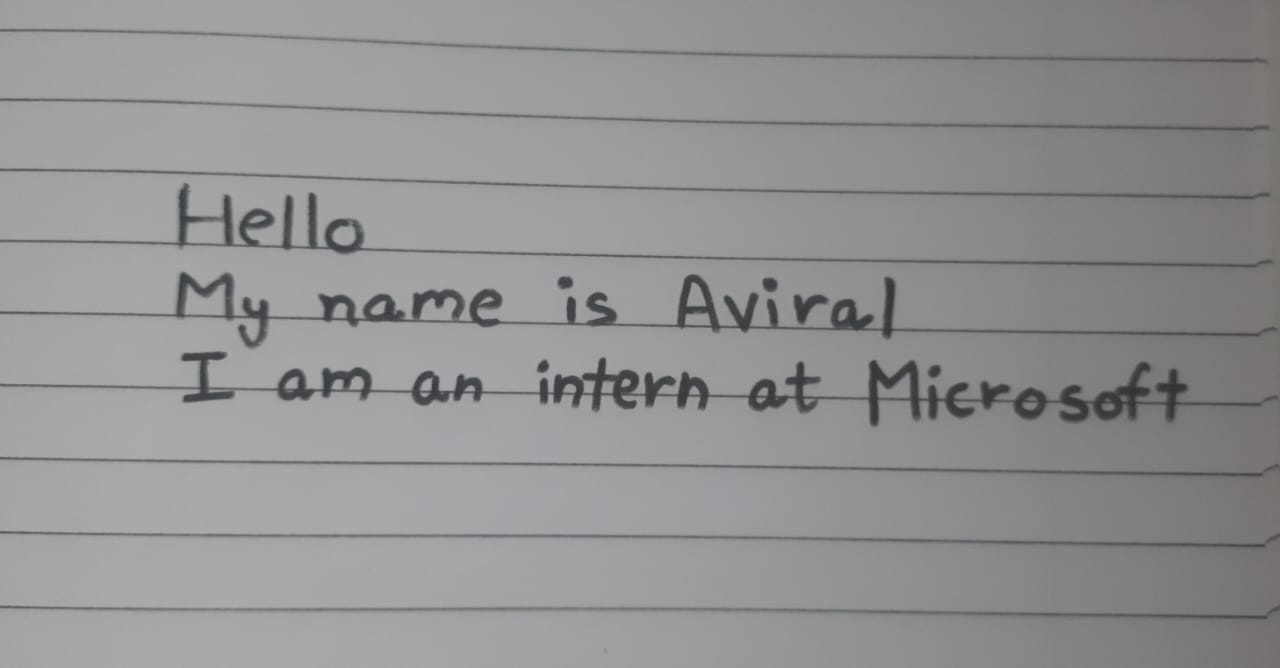 Hello
My name is Aviral
I am an intern at Microsoft